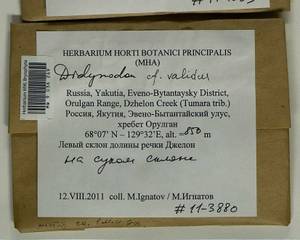 HERBARIUM HORTI BOTANICI PRINCIPALIS
(MHA)
Didymodon cf. validus
Russia, Yakutia, Eveno-Bytantaysky District,
Orulgan Range, Dzhelon Creek (Tumara trib.)
Россия, Якутия, Эвено-Бытантайский улус,
хребет Орулган
68°07' N – 129°32'E, alt. = 850 m
Левый склон долины речки Джелон
на сухом склоне
12.VIII.2011 coll. M.Ignatov / М.Игнатов
# 11-3880